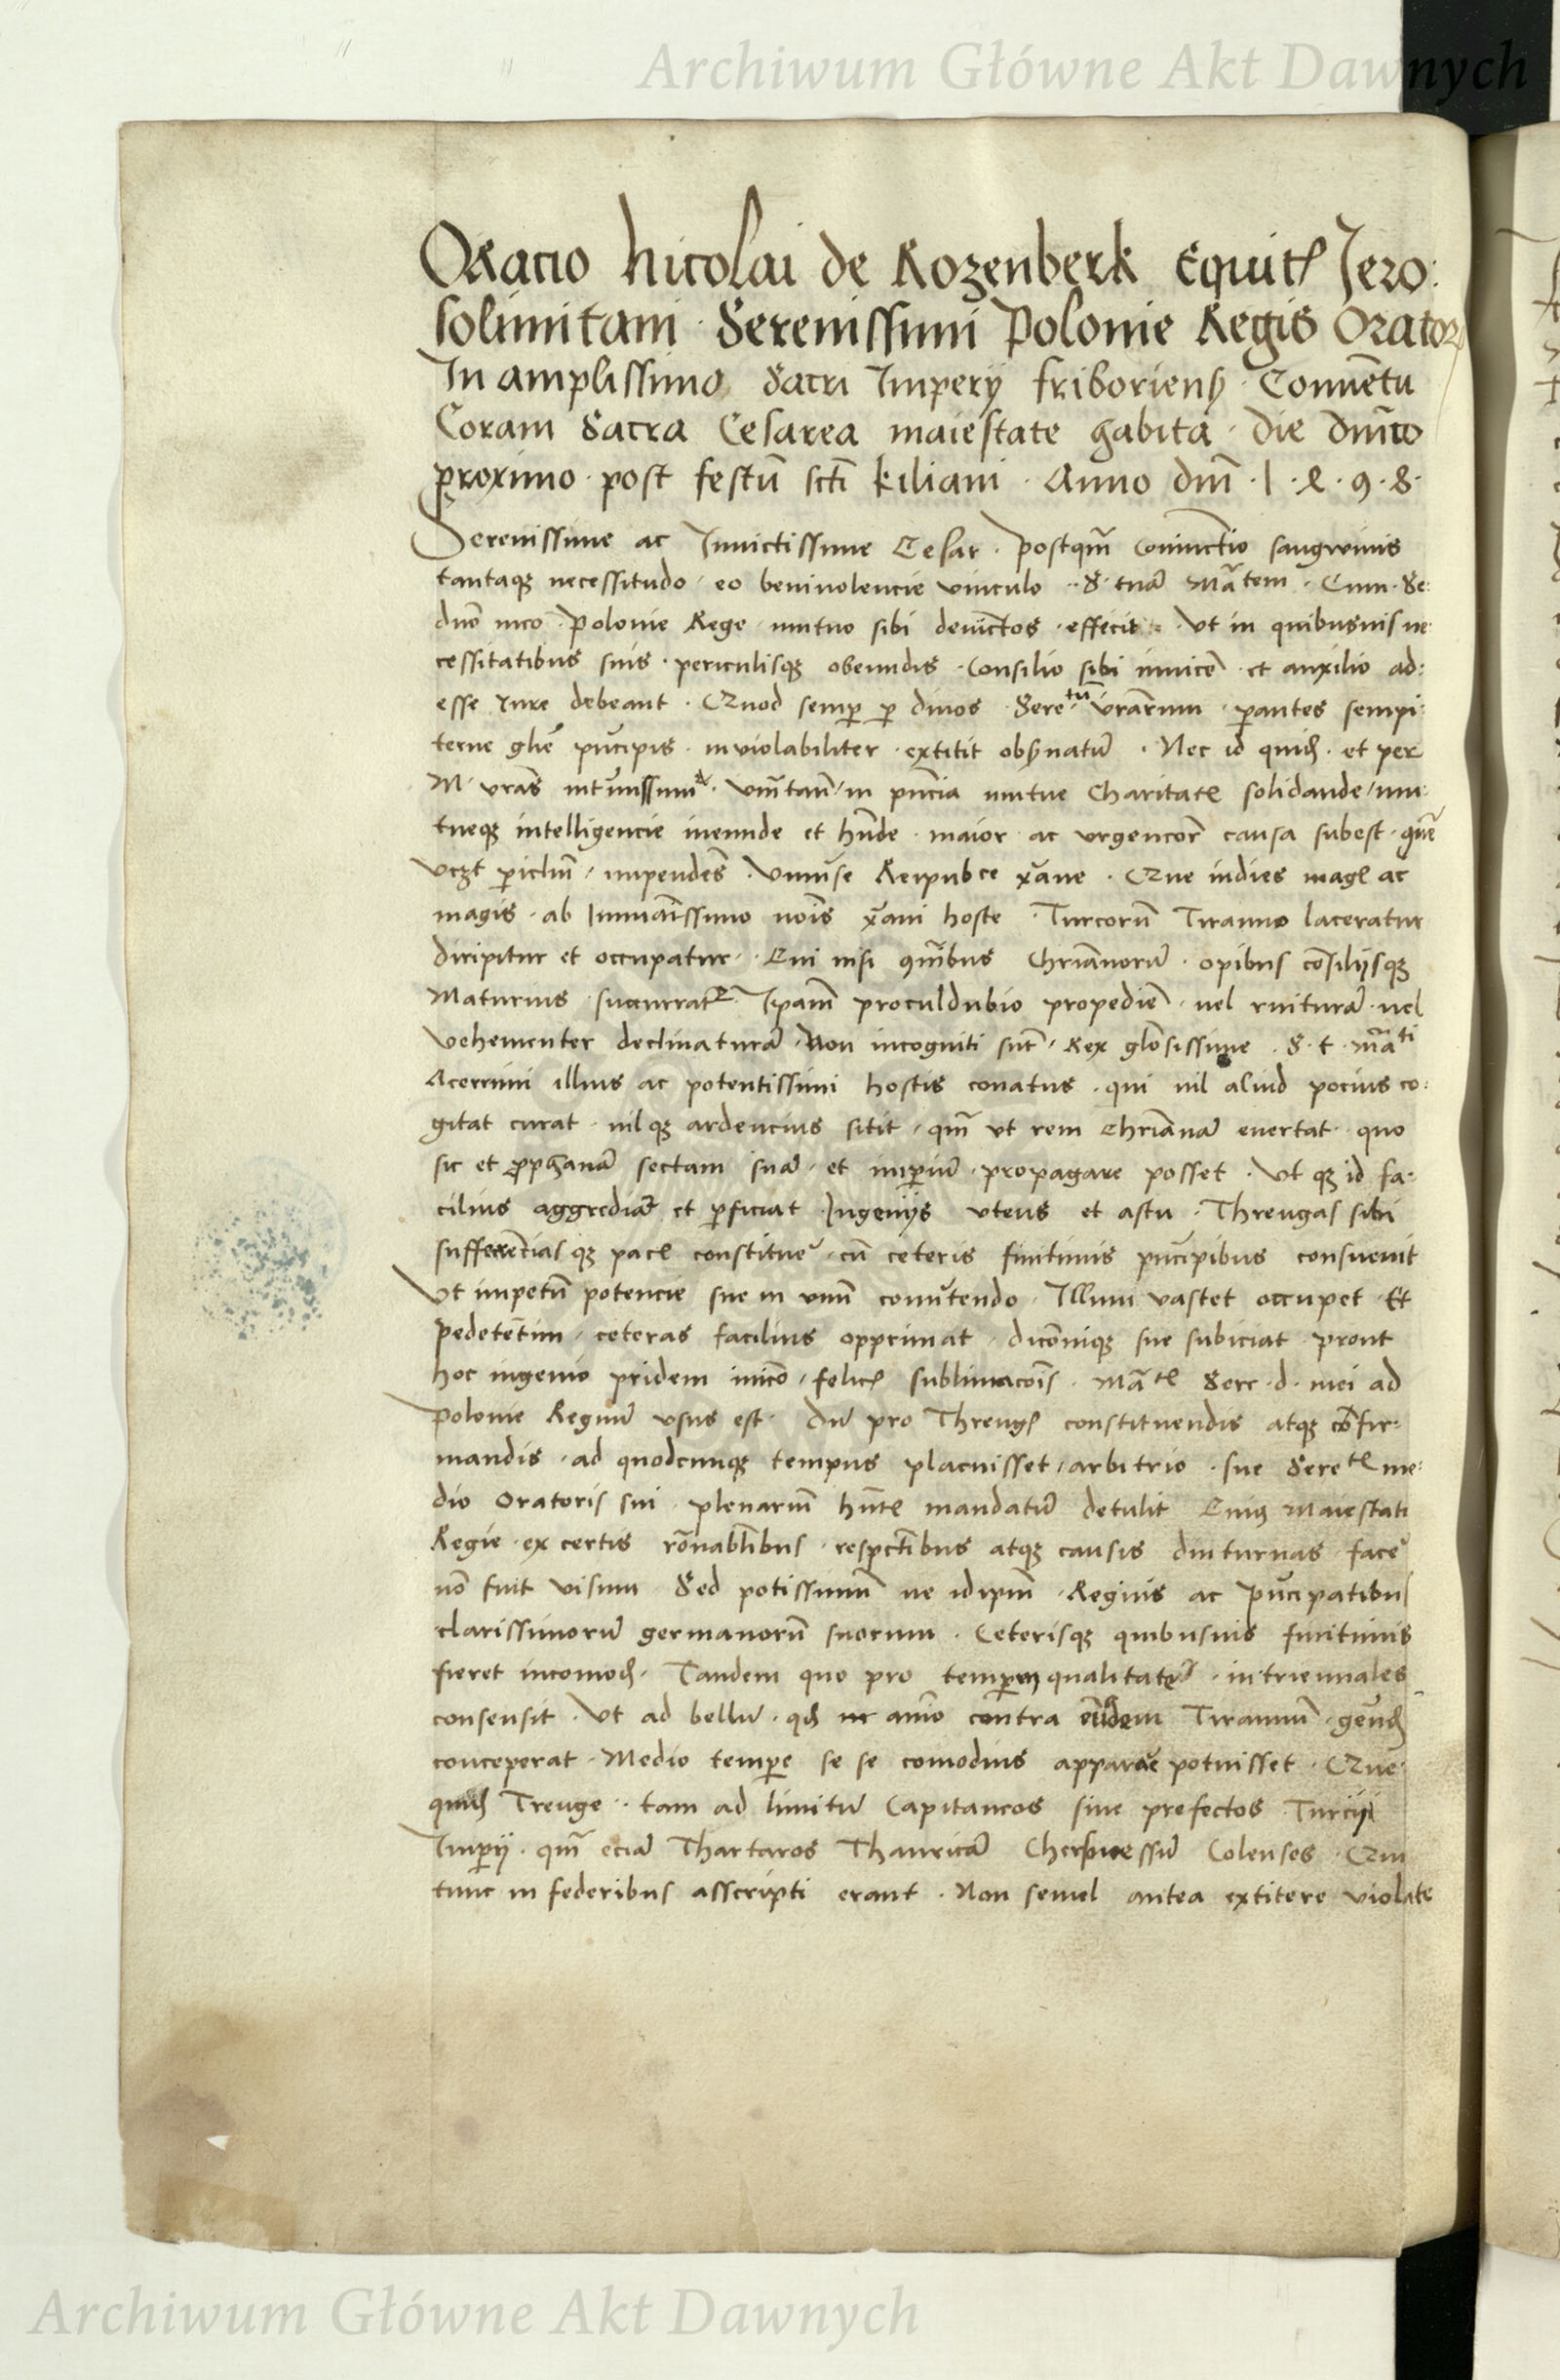 Archiwum Główne Akt Dawnych
Oracio Nicolai de Rozenberk Equit Jero:
solimitani Serenissimi Polonie Regis Orator
In amplissimo Sacri Imperij friboriens Conventu
Coram Sacra Cesarea maiestate habita die dmco
proximo post festū scti kiliani Anno dm 1 4 9 8
Serenissime ac Invictissime Cesar Postqm coniunctio sangwinis
tantaqz necessitudo eo benivolencie vinculo S tuā Matem Cum Se:
duo meo Polonie Rege mutuo sibi devinctos effecit Vt in quibusuis ne
cessitatibus suis periculisqz obeundis Consilio sibi invicē et auxilio ad:
esse Iure debeant Quod semp p divos Seretū vrarum parentes sempi:
terne glie pncipis inviolabiliter extitit obsvatū Nec id quid et per
M vras solidande mu:
tueqz intelligencie ineunde et hnde maior ac urgencior causa subest quē
vczt piclm impendes Vniuse Reipubce xane Que indies mag ac
magis ab Immanissimo nois xani hoste Turcorū Tiranno laceratur
diripitur et occupatur Cui nisi omibus Chrianorū opibus cosilijsqz
Maturius succurrat Ipam proculdubio propediē vel ruiturā vel
vehementer declinaturā Non incogniti sūt Rex glosissime S t mati
Acerrimi illius ac potentissimi hostis conatus qui nil aliud pocius co:
gitat curat nilqz ardencius sitit qm vt rem Chrianā evertat quo
sic et prophanā sectam suā et impiū propagare posset Vt qz id fa:
cilius aggrediat et pficiat Ingenijs vtens et astu Threugas sibi
sufferenciasqz pac constitue cū ceteris finitimis pncipibus consuevit
Vt impetū potencie sue in vnū convtendo Illum vastet occupet Et
pedetetim ceteras facilius opprimat diconiqz sue subiciat prout
hoc ingenio pridem inico felic sublimacois Mat Sere d mei ad
Polonie Regnū vsus est dū pro Threug constituendis atqz cofir:
mandis ad quodcunqz tempus placuisset arbitrio sue Seret me:
dio Oratoris sui plenariū hnt mandatū detulit Cuius Maiestati
Regie ex certis ronablibus respectibus atqz causis diuturnas face
nō fuit visum Sed potissimū ne idipm Regnis ac pncipatibus
clarissimorū germanorū suorum Ceterisqz quibusuis finitimis
fieret incomod Tandem quo pro tempum qualitate in triennales
consensit Vt ad bellū qd animo contra eundem Tirannū gerend
conceperat Medio tempe se se comodius apparare potuisset Que
quid Treuge tam ad limitū Capitaneos sive prefectos Turcij
Imperij qm eciā Thartaros Thauricā Chersonessū Colentes Qui
tunc in federibus asscripti erant Non semel antea extitere violate
Archiwum Główne Akt Dawnych